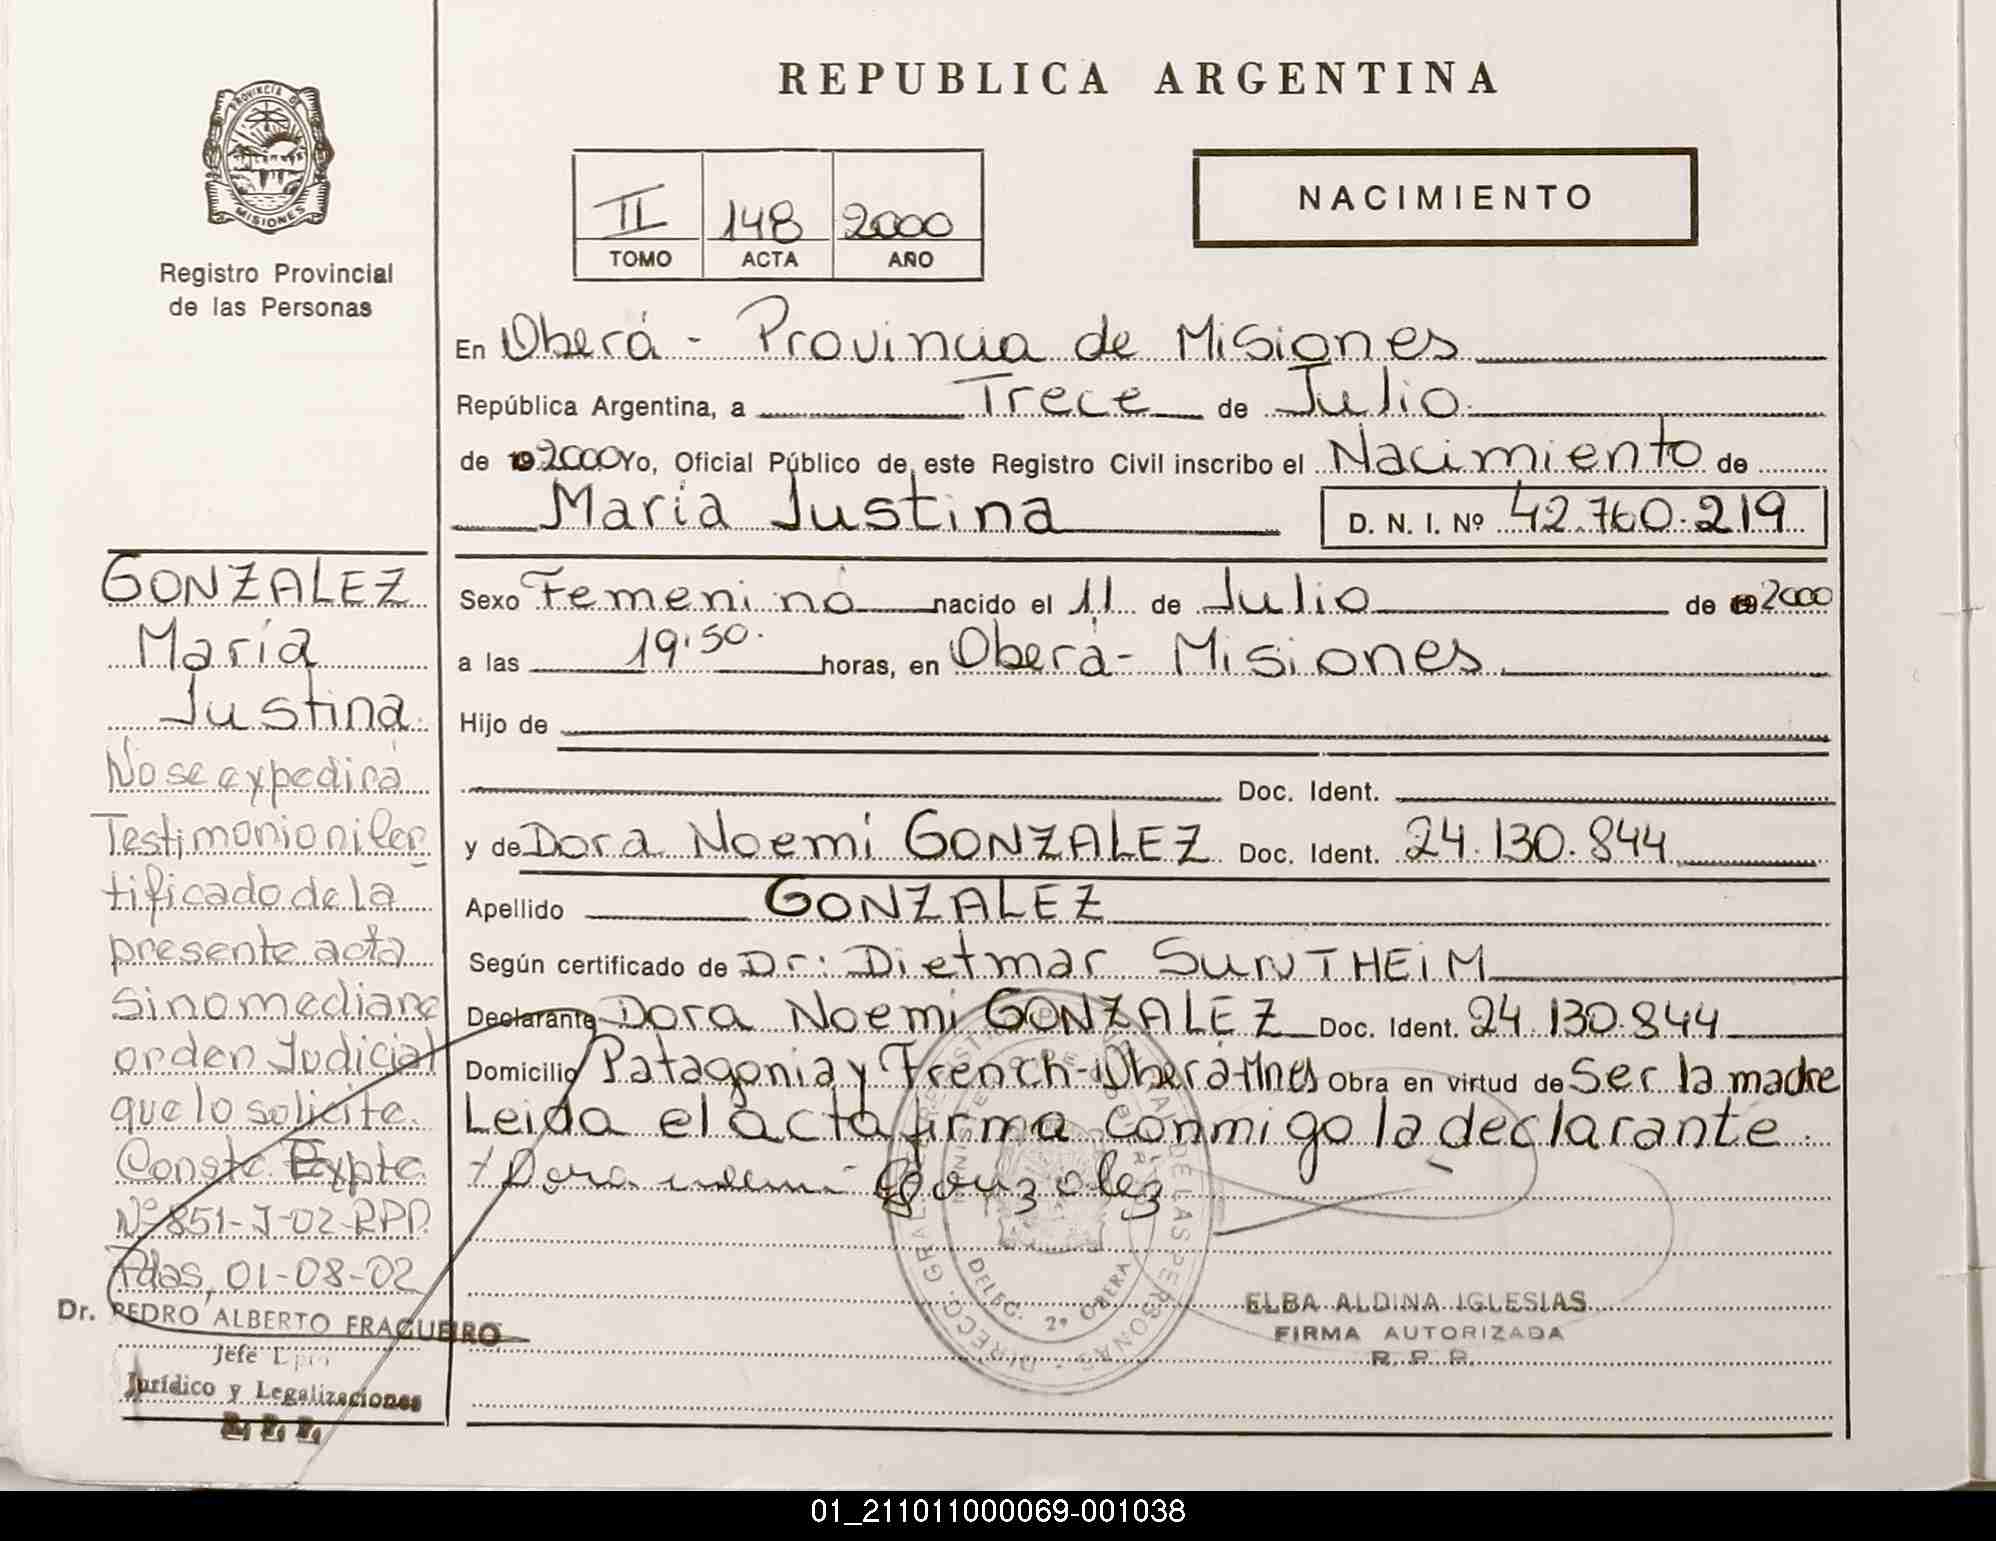 REPUBLICA ARGENTINA
PROVINCIA DE
MISIONES
Registro Provincial
de las Personas
II 148 2000
TOMO ACTA AÑO
NACIMIENTO
En Oberá - Provincia de Misiones
República Argentina, a Trece de Julio
de 19 2000 Yo, Oficial Público de este Registro Civil inscribo el Nacimiento de
María Justina D. N. I. Nº 42.760.219
Sexo Femenino nacido el 11 de Julio de 19 2000
a las 19:50. horas, en Oberá - Misiones
Hijo de
Doc. Ident.
y de Dora Noemí GONZALEZ Doc. Ident. 24.130.844
Apellido GONZALEZ
Según certificado de Dr. Dietmar SUNTHEIM
Declarante Dora Noemí GONZALEZ Doc. Ident. 24.130.844
Domicilio Patagonia y French - Oberá - Mnes Obra en virtud de Ser la madre
Leida el acta firma conmigo la declarante.
Dora noemi Gonzalez
DELEG. 2º OBERA
ELBA ALDINA IGLESIAS
FIRMA AUTORIZADA
R. P. P.
GONZALEZ
María
Justina
No se expedirá
Testimonio ni Cer
tificado de la
presente acta
sino mediare
orden Judicial
que lo solicite.
Conste Expte
Nº 851-J-02-RPP.
Pdas, 01-08-02
Dr. PEDRO ALBERTO FRAGUEIRO
Jefe Dpto
Jurídico y Legalizaciones
01_211011000069-001038